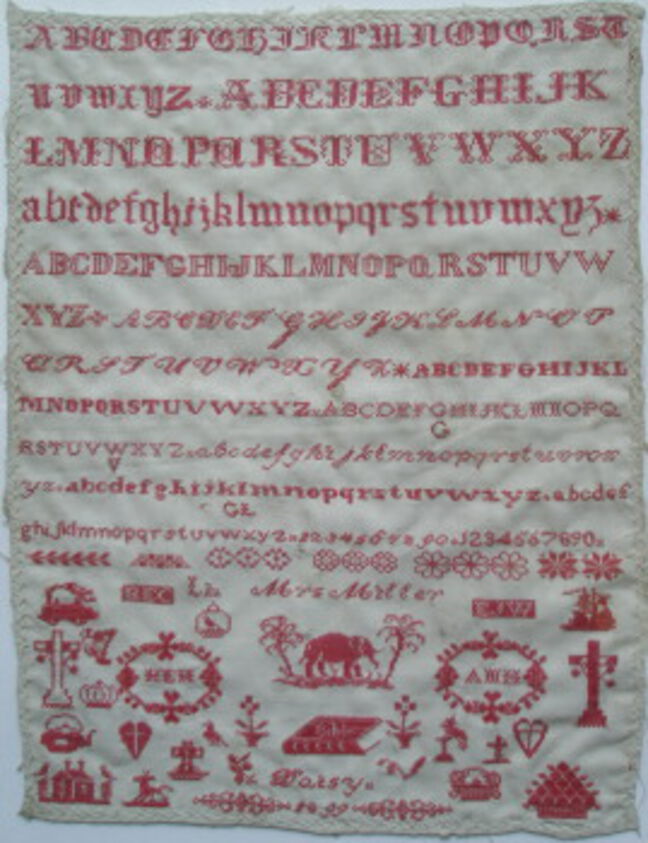 ABCDEFGHIJKLMNOPQRST
uvwxyz*ABCDEFGHIJK
LMNOPQRSTUVWXYZ
abcdefghijklmnopqrstuvwxyz*
ABCDEFGHIJKLMNOPQRSTUVW
XYZ*ABCDEFGHIJKLMNOP
QRSTUVWXYZ*ABCDEFGHIJKL
MNOPQRSTUVWXYZ*ABCDEFGHIJKLMNOPQ
G
RSTUVWXYZ*abcdefghijklmnopqrstuvwx
V
yz*abcdefghijklmnopqrstuvwxyz*abcdef
GL
ghijklmnopqrstuvwxyz*1234567890*1234567890*
Mrs Miller
EJW
HLH
AMH